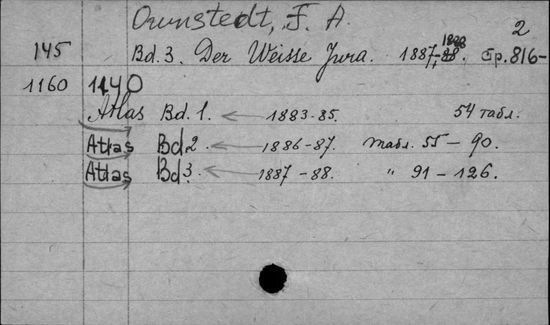 Quenstedt, F. A.
2
145 Bd. 3. Der Weisse Jura. 1887-88. 1888 Стр. 816-
1160 1140
Atlas Bd. 1. ← 1883-85. 54 табл.
Atlas Bd 2. ← 1886-87. табл. 55 - 90.
Atlas Bd 3. ← 1887-88. " 91 - 126.